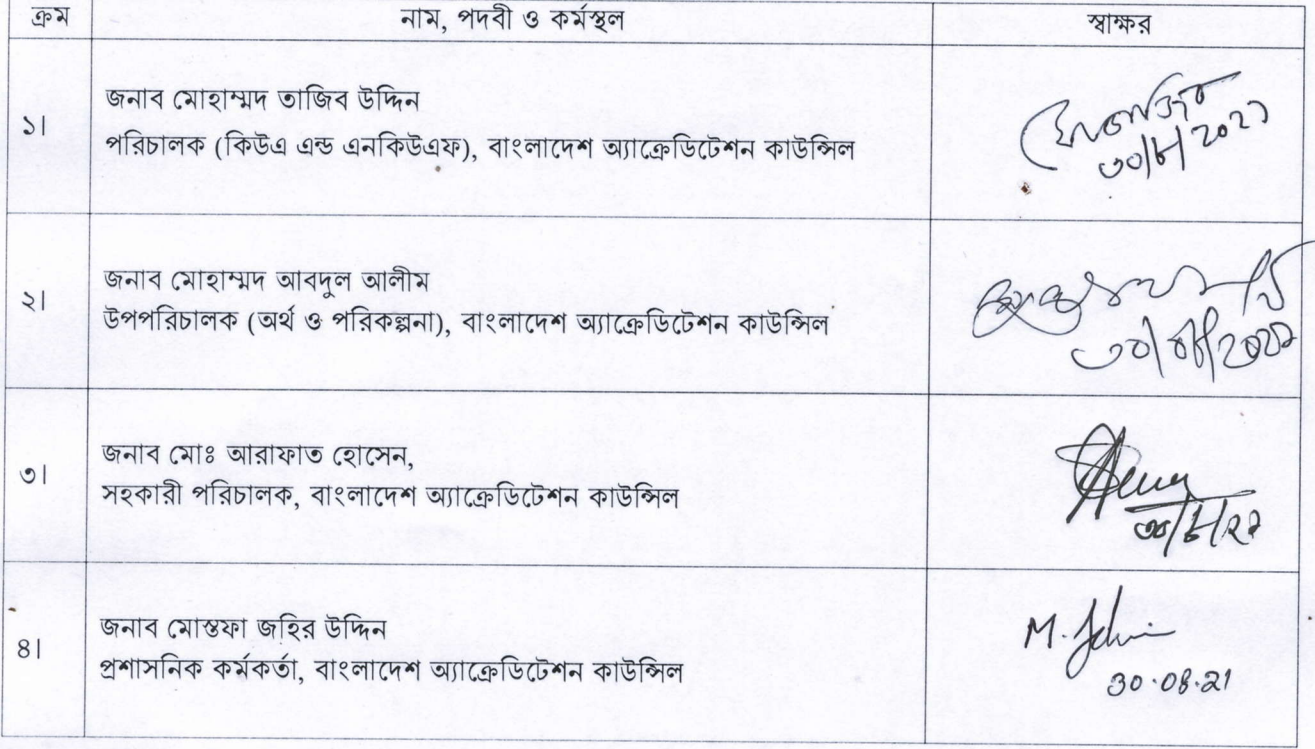 ক্রম নাম, পদবী ও কর্মস্থল স্বাক্ষর
জনাব মোহাম্মদ তাজিব উদ্দিন
১।
পরিচালক (কিউএ এন্ড এনকিউএফ), বাংলাদেশ অ্যাক্রেডিটেশন কাউন্সিল
৩০/৮/২০২১
জনাব মোহাম্মদ আবদুল আলীম
২।
উপপরিচালক (অর্থ ও পরিকল্পনা), বাংলাদেশ অ্যাক্রেডিটেশন কাউন্সিল
৩০/০৮/২০২১
জনাব মোঃ আরাফাত হোসেন,
৩।
সহকারী পরিচালক, বাংলাদেশ অ্যাক্রেডিটেশন কাউন্সিল
৩০/৮/২১
জনাব মোস্তফা জহির উদ্দিন
৪।
প্রশাসনিক কর্মকর্তা, বাংলাদেশ অ্যাক্রেডিটেশন কাউন্সিল
30.08.21